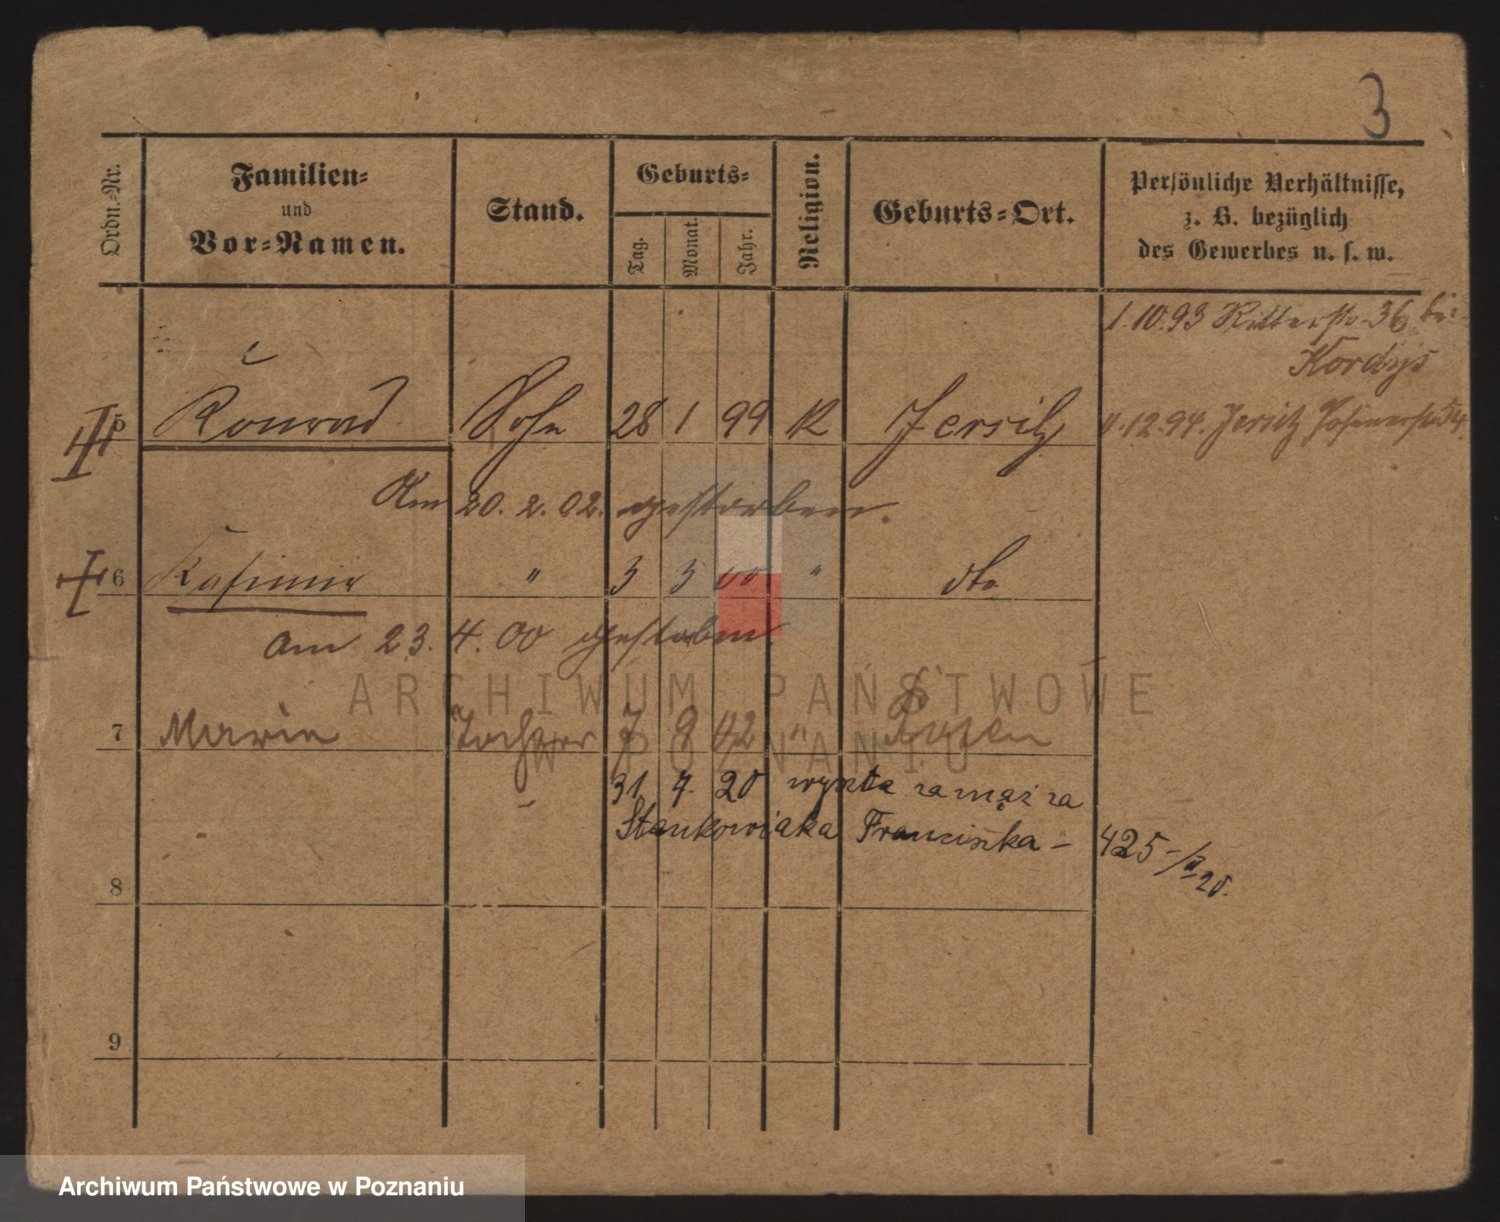 3
Ordn.-Nr. Familien- und Vor-Namen. Stand. Geburts- Tag. Monat. Jahr. Religion. Geburts-Ort. Persönliche Verhältnisse, z. B. bezüglich des Gewerbes u. s. w.
1.10.93 Ritterstr. 36 bei
Kordys
5 Konrad Sohn 28 1 99 K Jersitz 11.12.94. Jersitz
Am 20.2.02. gestorben.
6 Kasimir " 3 3 00 " dto
am 23.4.00 gestorben
7 Maria Tochter 7 8 " Posen
31 7. 20 wyszła zamąż za
Stankowiaka Franciszka – 425
8
9
ARCHIWUM PAŃSTWOWE
W POZNANIU
Archiwum Państwowe w Poznaniu